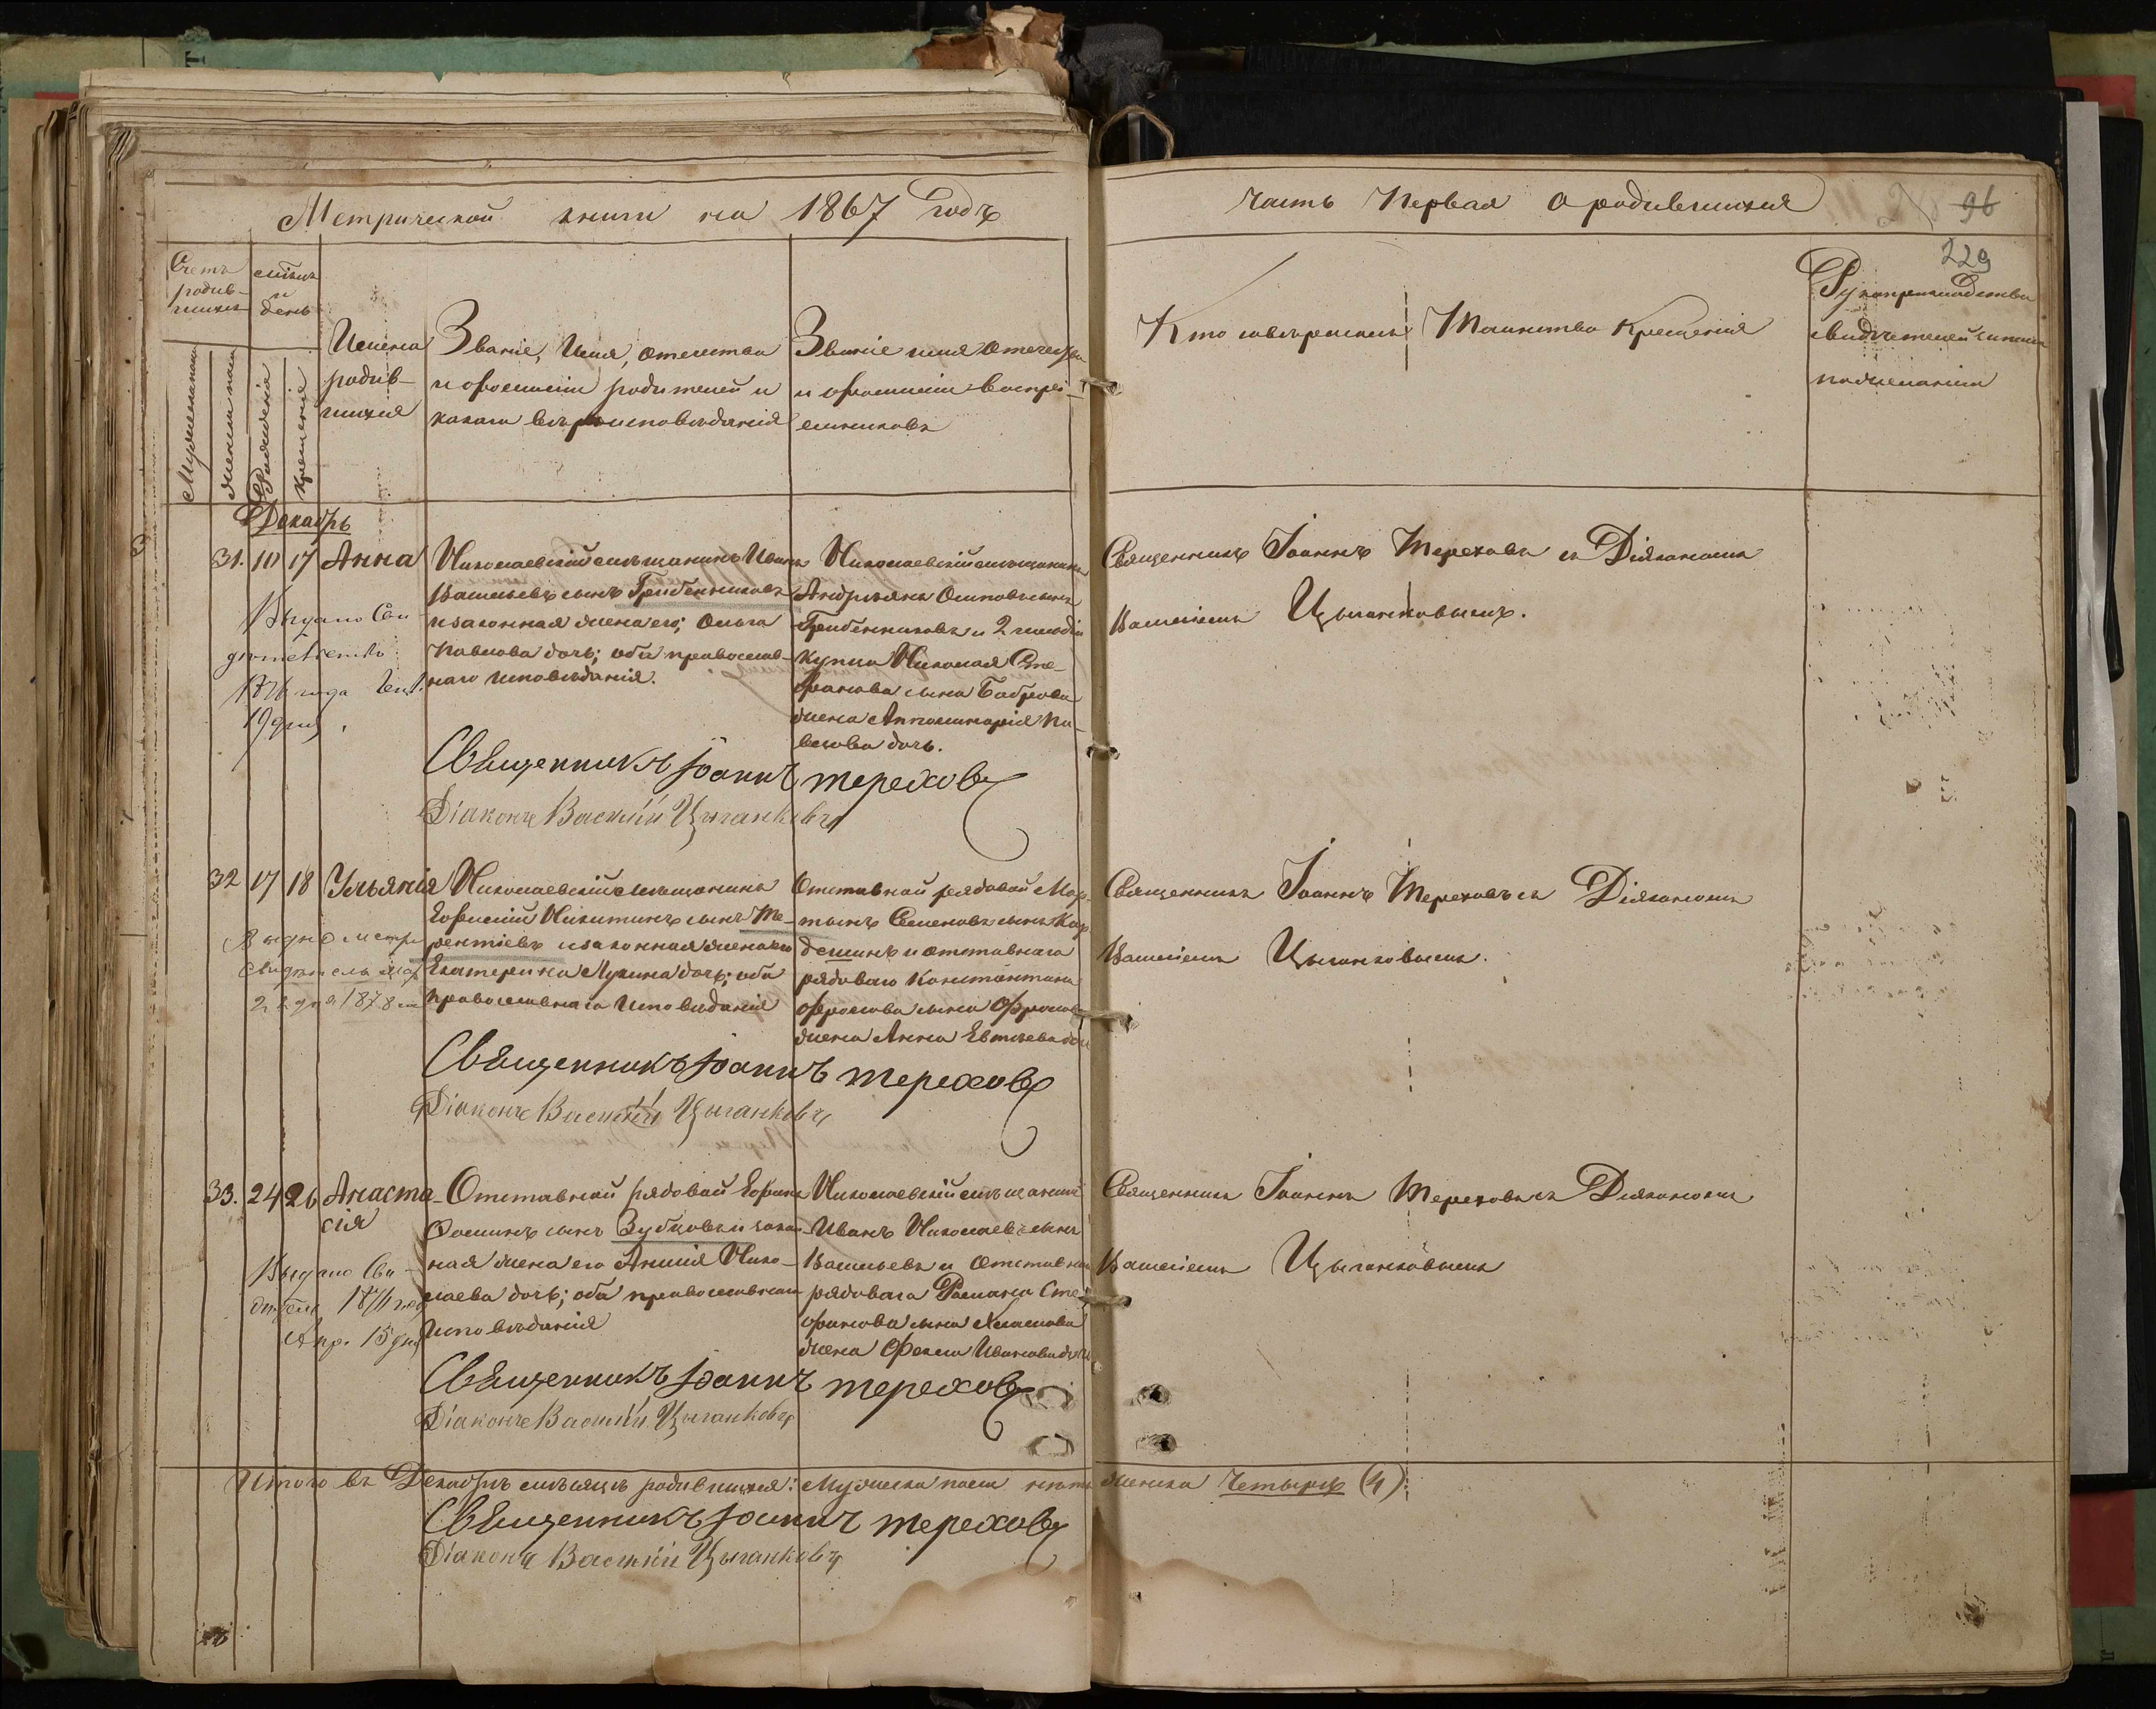 Метрической книги на 1867 годъ
Часть Первая о родившихся
96
229
Счетъ родив-шихся
Мѣсяцъ и день
Мужескаго
Женскаго
Рожденія
Крещенія
Имена
родив-
шихся
Званіе, Имя, отечество
и фамилія родителей и
какого вѣроисповѣданія
Званіе имя отечество
и фамилія воспрі-
емниковъ
Кто совершалъ Таинство Крещенія
Рукоприкладство
свидѣтелей записи
по желанію
Декабрь
31. 10 17 Анна
Николаевскій мѣщанинъ Иванъ
Васильевъ сынъ Гребенниковъ
и законная жена его; Ольга
Павлова дочь; оба православ-
наго исповѣданія.
Николаевскій мѣщанинъ
Андріянъ Осиповъ сынъ
Гребенниковъ и 2 гильдіи
купца Николая Сте-
фанова сына Боброва
жена Апполинарія Па-
влова дочь.
Священникъ Іоаннъ Тереховъ съ Діякономъ
Василіемъ Цыганковымъ.
Выдано Сви
1876 года
19 дня
Священникъ Іоаннъ Тереховъ
Діаконъ Василій Цыганковъ
32 17 18 Ульянія
Николаевскій мѣщанинъ
Ефимій Никитинъ сынъ Те-
рентіевъ и законная жена его
Екатерина Лукина дочь; оба
православнаго Исповѣданія
Отставной рядовой Мар-
тынъ Семеновъ сынъ Кар
дешинъ и отставнаго
рядоваго Константина
Фролова сына Фролова
жена Анна Евтѣева доч
Священникъ Іоаннъ Тереховъ съ Діякономъ
Василіемъ Цыганковымъ.
Выдано метри
22 дня 1878
Священникъ Іоаннъ Тереховъ
Діаконъ Василій Цыганковъ
33. 24 26 Анаста-
сія
Отставной рядовой Ефимъ
Фоминъ сынъ Зубцовъ и закон-
ная жена его Анисія Нико-
лаева дочь; оба православнаго
Исповѣданія
Николаевскій мѣщанинъ
Иванъ Николаевъ сынъ
Васильевъ и Отставнаго
рядоваго Романа Сте-
фанова сына
жена Фекла Иванова доч
Священникъ Іоаннъ Тереховъ съ Діякономъ
Василіемъ Цыганковымъ
Выдано Сви-
Апр. 15 дня
Священникъ Іоаннъ Тереховъ
Діаконъ Василій Цыганковъ
Итого въ Декабрѣ мѣсяцѣ родившихся: Мужеска пола нѣтъ женска Четыре (4)
Священникъ Іоаннъ Тереховъ
Діаконъ Василій Цыганковъ